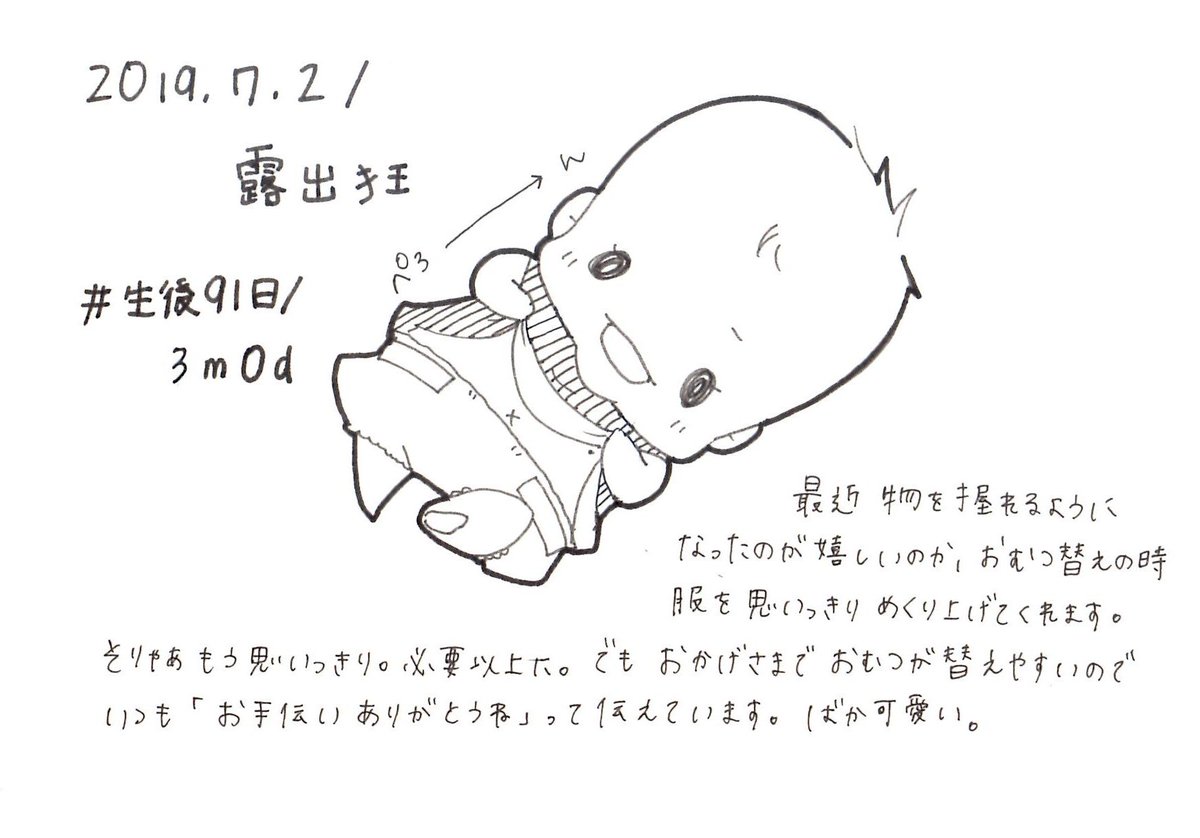 2019.7.2/
露出狂
#生後91日/
3m0d
ペロろ
w
最近 物を握れるように
なったのが嬉しいのか、おむつ替えの時
服を思いっきり めくり上げてくれます。
そりゃあ もう思いっきり。必要以上に。でも おかげさまで おむつが替えやすいので
いつも「お手伝い ありがとうね」って伝えています。ばか可愛い。